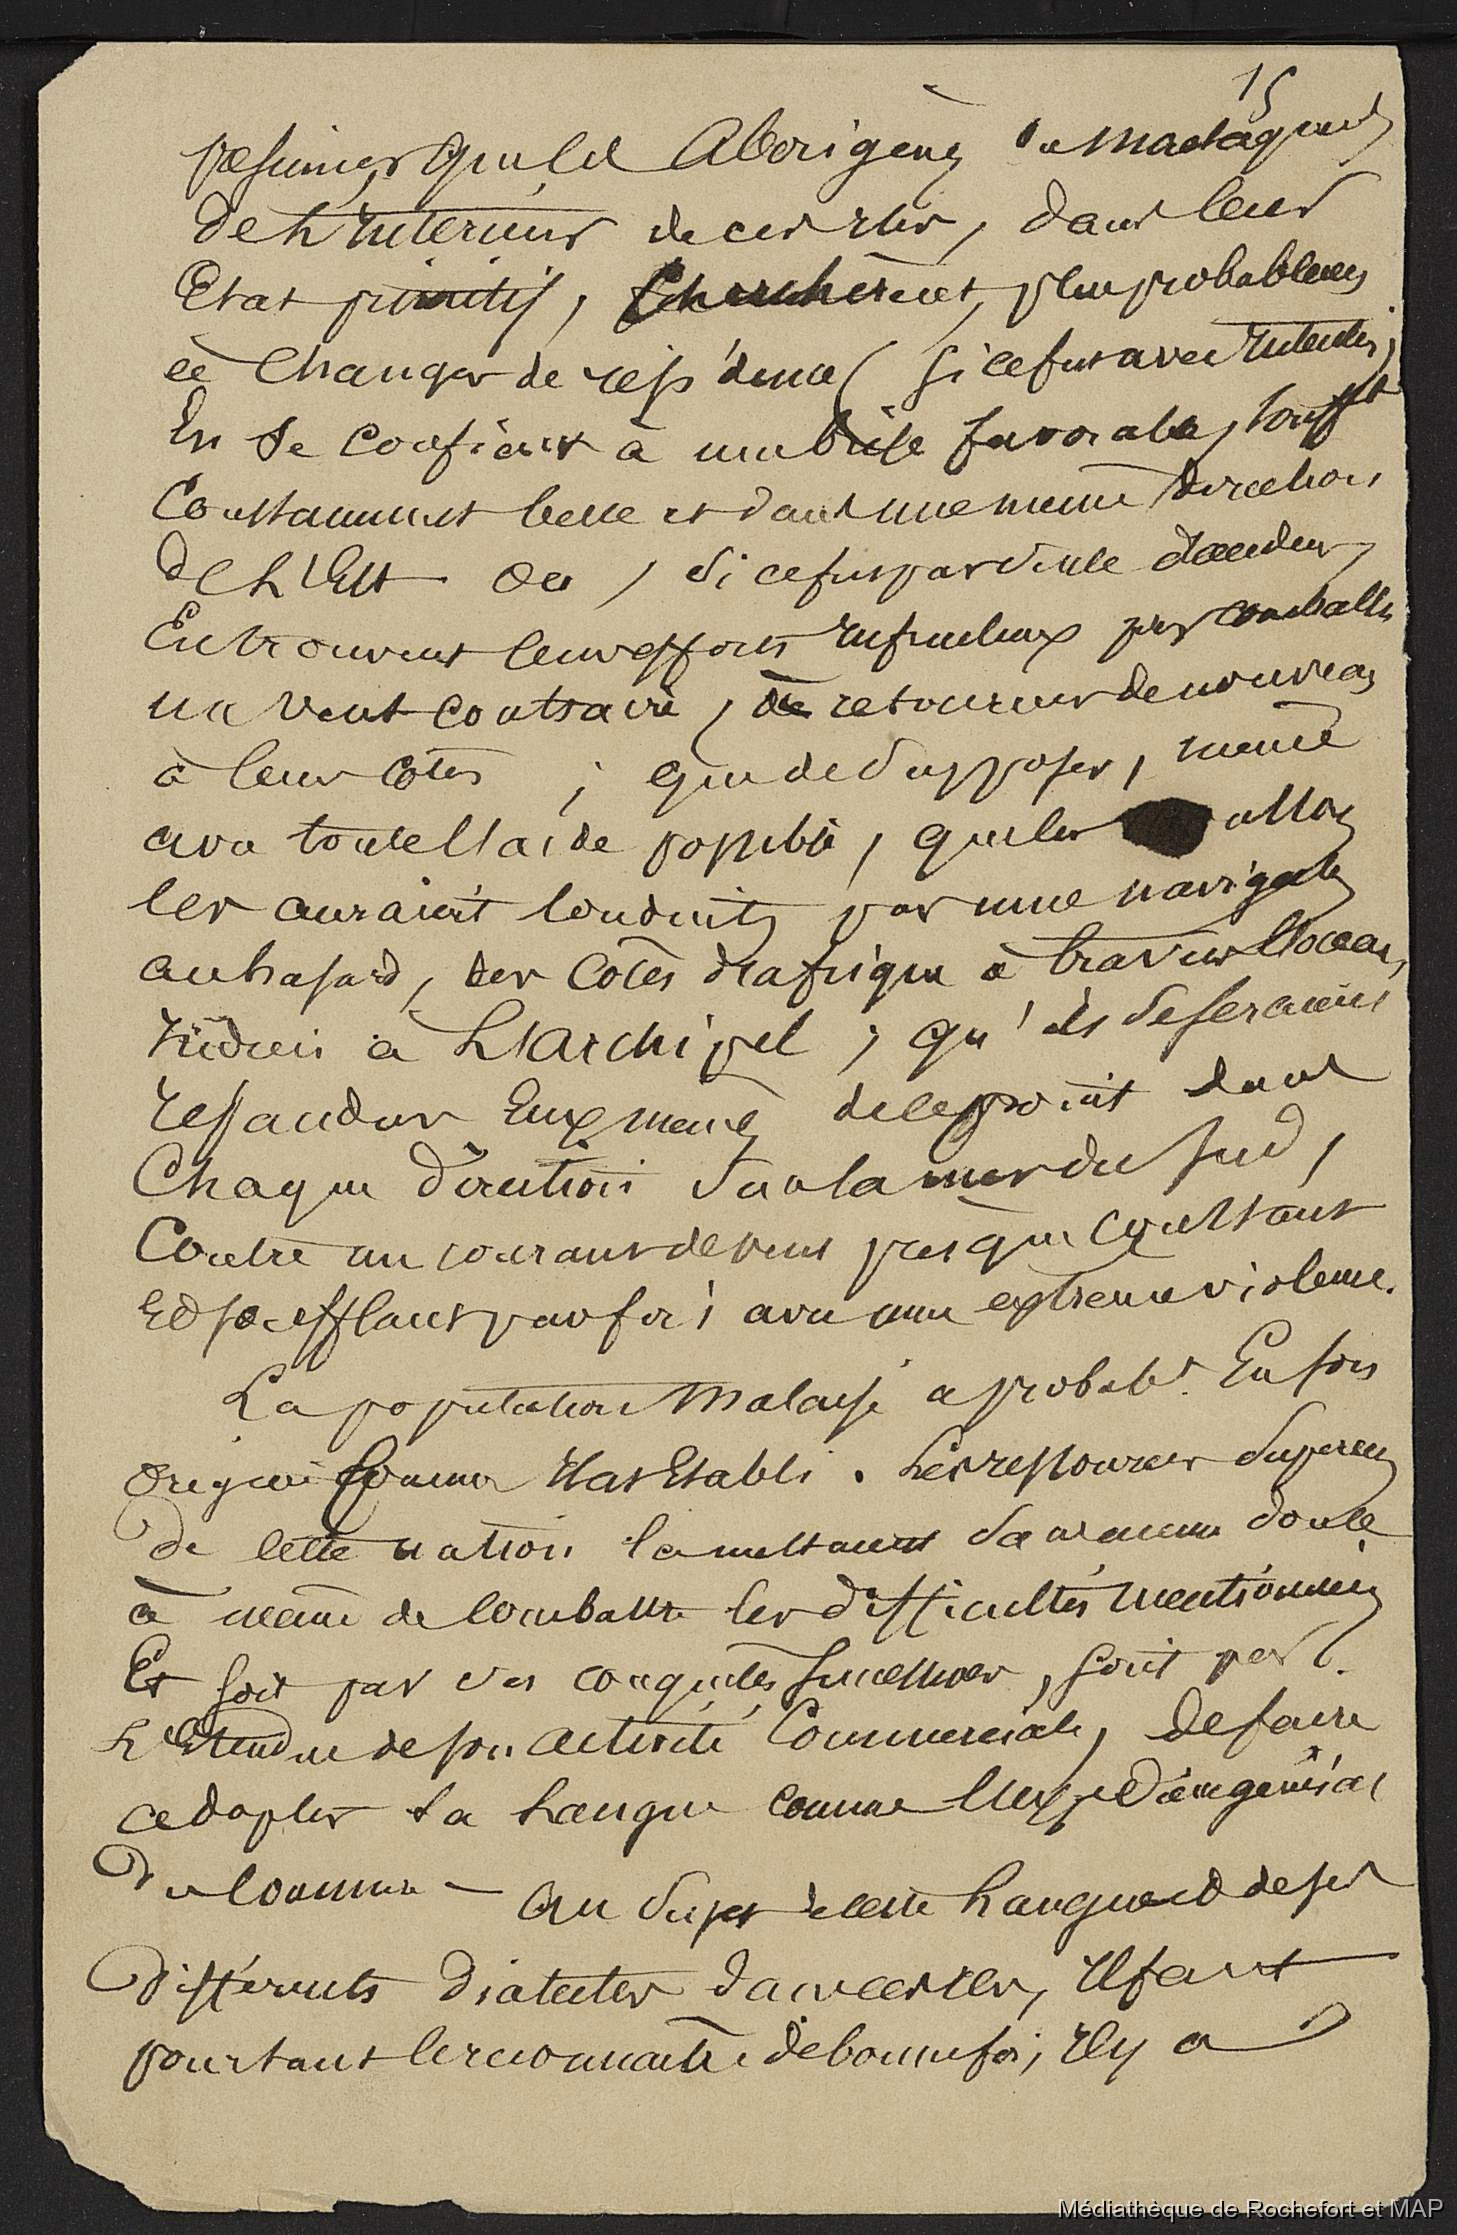 15
présumer que les Aborigènes ou Madagas
de L'Interieur de ces Iles, dans leur
Etat primitif, Cherchèrent, plus probablemen
à Changer de résidence ( si ce fut avec Intention)
En se confiant à une brise favorable, souff.t
Constamment belle et dans une meme direction
de L'Est ou, si ce fut par seule
En trouvant leurs efforts Infructueux pour combattre
un vent contraire, de retourner de nouveau
à leurs côtes ; que de supposer, meme
avec toute l'aide possible, que les
les auraient conduits par une navigation
au hasard, des Côtes d'afrique à travers l'océan
Indien à L'Archipel ; qu'ils se seraient
repandus Eux memes de ce point dans
Chaque direction dans la mer du Sud,
Contre un courant de vent presque constant
Et soufflant par fois avec une extreme violence.
La population Malaise a probabl.t En son
origine comme Etat Etabli. Les ressources
de cette nation la mettaient sans aucun doute
à meme de combattre les difficultés mentionnées
Et soit par des conquêtes successives, soit par
L'Etendue de son activité Commerciale, de faire
adopter sa Langue comme general
du commun — Au sujet de cette Langue et de ses
différents dialectes dans ces Iles, Il faut
pourtant le reconnaitre de bonne foi, Il y a
Médiathèque de Rochefort et MAP